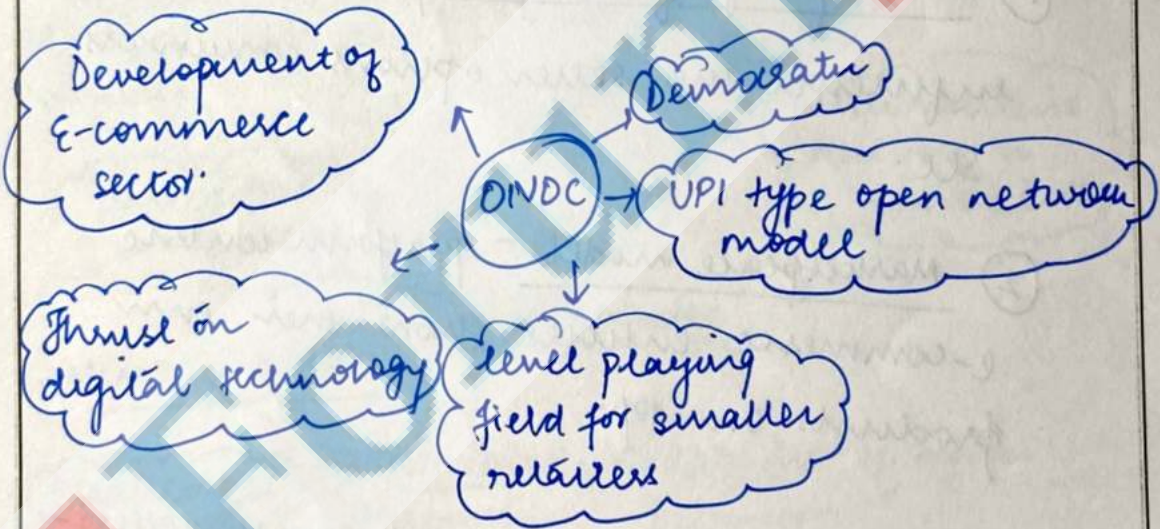 Development of
E-commerce
sector.
Democratic
ONDC
UPI type open network
model
Thrust on
digital technology
level playing
field for smaller
retailers
Forum